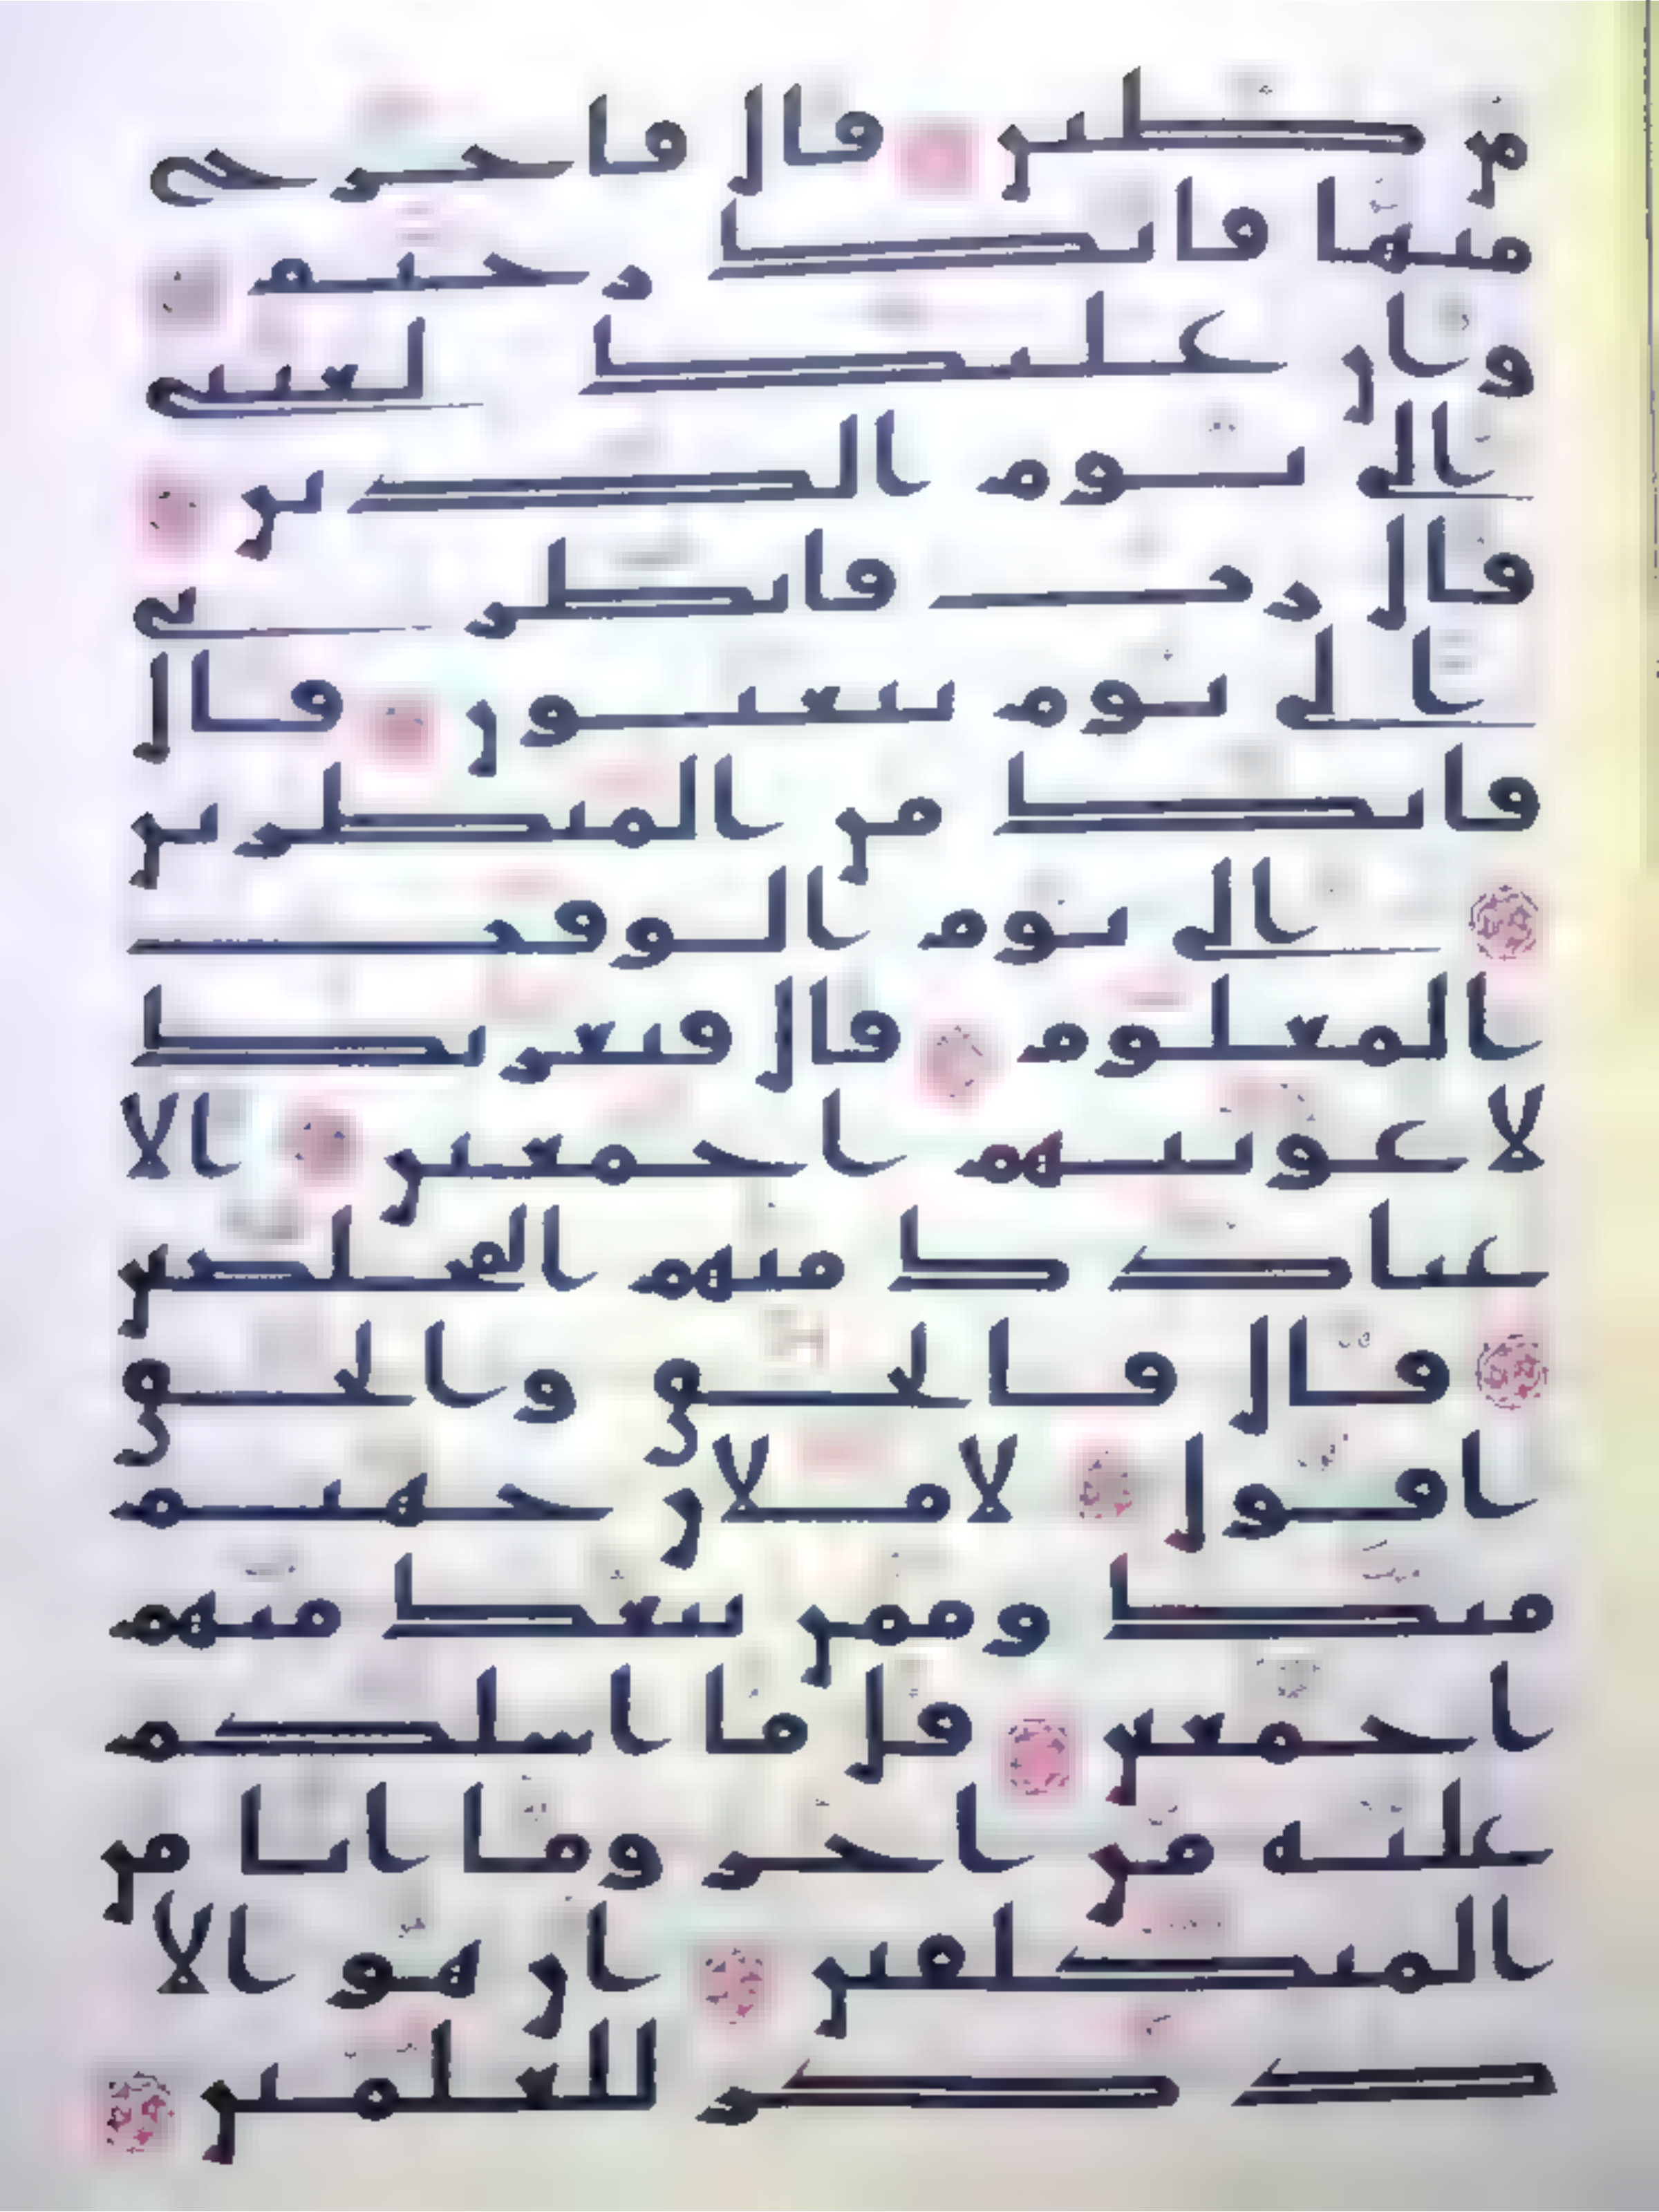 من طين قال فاخرج
منها فانك رجيم
وان عليك لعنتي
الى يوم الدين
قال رب فانظرني
الى يوم يبعثون قال
فانك من المنظرين
الى يوم الوقت
المعلوم قال فبعزتك
لاغوينهم اجمعين الا
عبادك منهم المخلصين
قال فالحق والحق
اقول لاملان جهنم
منك وممن تبعك منهم
اجمعين قل ما اسلكم
عليه من اجر وما انا من
المتكلفين ان هو الا
ذكر للعلمين